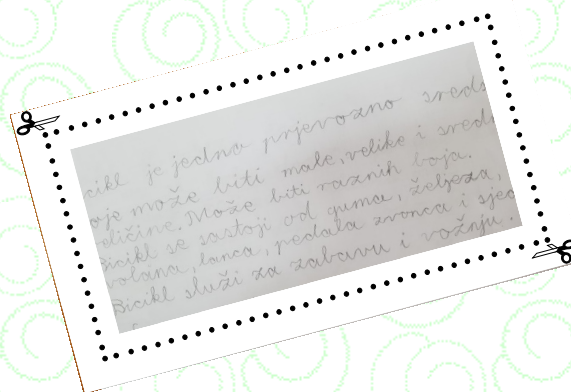 cikl je jedno prjevozno sreds
oje može biti male, velike i sred
eličine. Može biti raznih boja.
Bicikl se sastoji od guma, željeza,
volana, lanca, pedala zvonca i sjed
Bicikl služi za zabavu i vožnju.